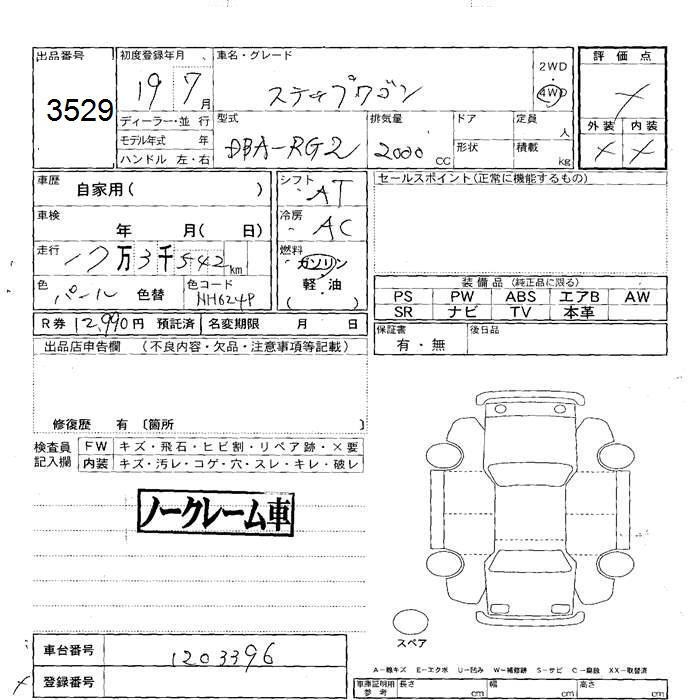 出品番号 初度登録年月 車名・グレード 2WD 評価点
3529 19 7月 ステップワゴン 4WD
ディーラー・並行 型式 排気量 ドア 定員 人 外装 内装
モデル年式 年 DBA-RG2 2000 CC 形状 積載 kg
ハンドル 左・右
車歴 自家用( ) シフト AT セールスポイント(正常に機能するもの)
車検 年 月( 日) 冷房 AC
走行 万3千542km 燃料 ガソリン
色 パール 色替 色コード NH624P 軽・油 ( )
装備品 (純正品に限る)
PS PW ABS エアB AW
SR ナビ TV 本革
R券 12,990円 預託済 名変期限 月 日 保証書 有・無 後日品
出品店申告欄 (不良内容・欠品・注意事項等記載)
修復歴 有 〔箇所 〕
検査員記入欄 FW キズ・飛石・ヒビ割・リペア跡・×要
内装 キズ・汚レ・コゲ・穴・スレ・キレ・破レ
ノークレーム車
スペア
車台番号 1203396
A-線キズ E-エクボ U-凹み W-補修跡 S-サビ C-腐蝕 XX-取替済
登録番号 車庫証明用参考 長さ cm 幅 cm 高さ cm